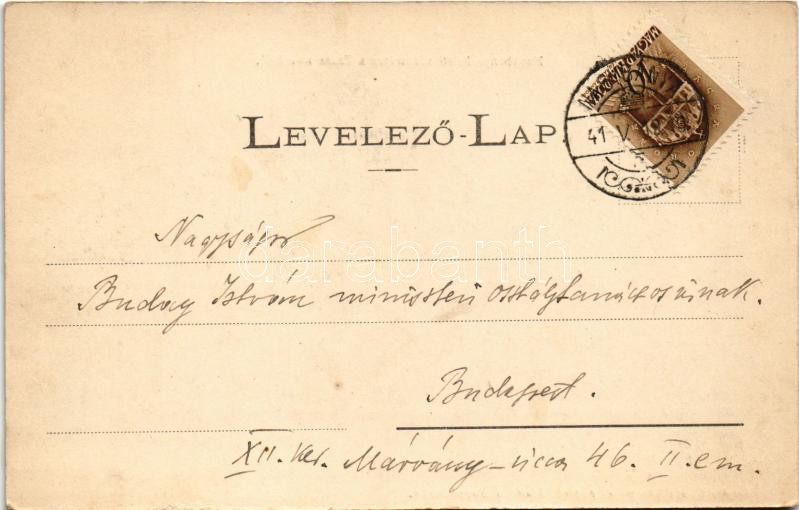 LEVELEZŐ-LAP
41 V
Nagyságos
Buday István miniszteri osztálytanácsos úrnak.
Budapest.
XII. ker. Márvány-ucca 46. II. em.
darabanth